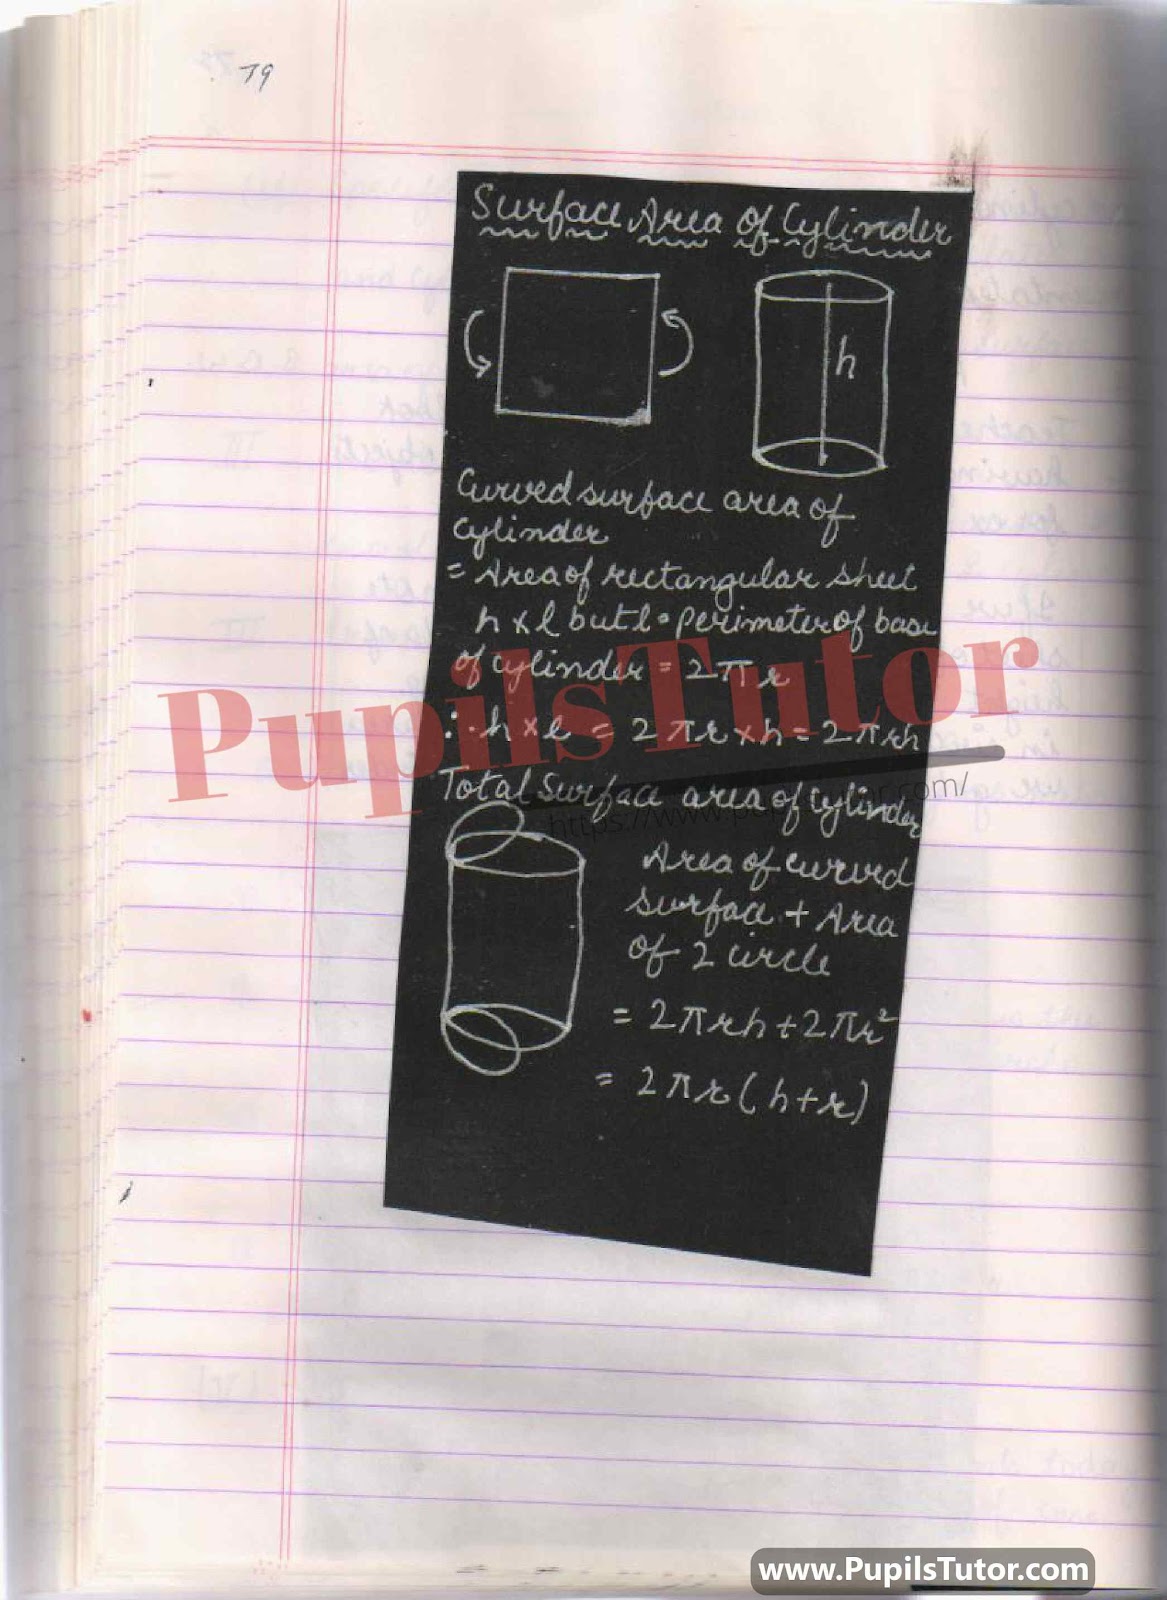 79
Surface Area of Cylinder
h
Curved surface area of
cylinder
= Area of rectangular sheet
h × l but l = perimeter of base
of cylinder = 2πr
∴ h × l = 2πr × h = 2πrh
Total Surface area of cylinder
Area of curved
surface + Area
of 2 circle
= 2πrh + 2πr²
= 2πr(h+r)
PupilsTutor
www.PupilsTutor.com